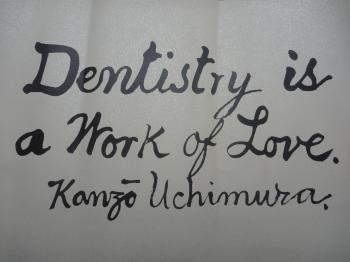 Dentistry is
a Work of Love.
Kanzō Uchimura.